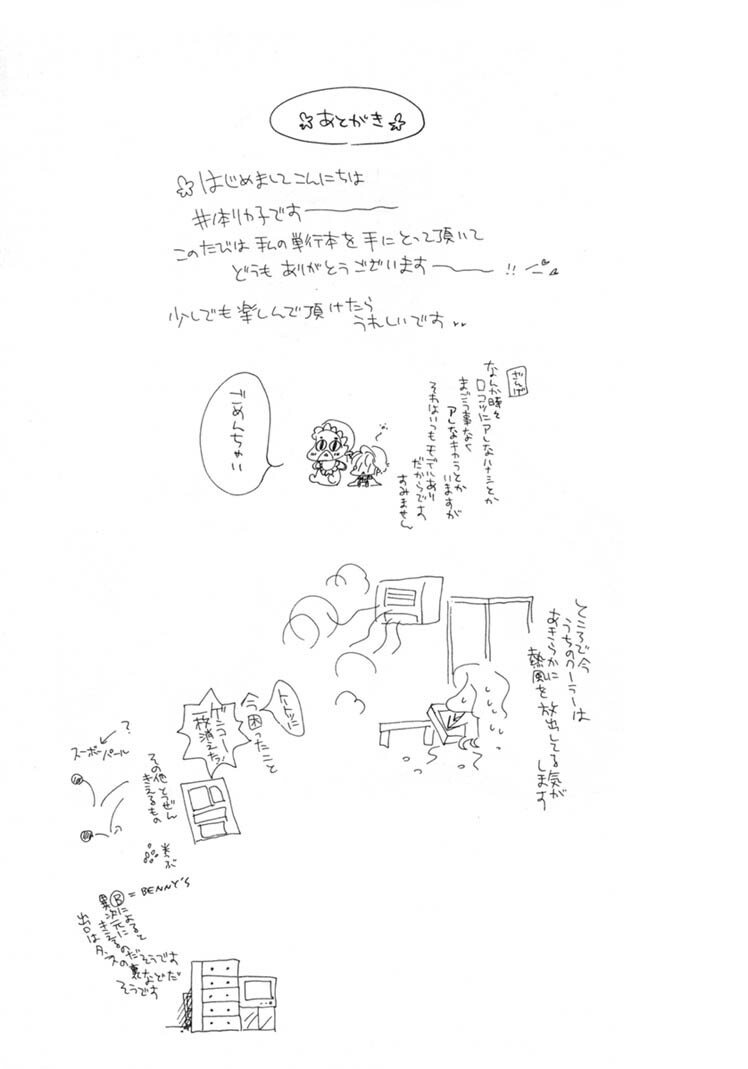 ☆あとがき☆
☆はじめましてこんにちは
井本リカ子です
このたびは私の単行本を手にとって頂いて
どうもありがとうございます !!
少しでも楽しんで頂けたら
うれしいです
ざんげ
なんか時々
ロコツにアレなハナシとか
まごう事なく
アレなキャラとか
いますが
それはいつもモデルあり
だからです
すみません
ごめんちゃい
ところで今
うちのクーラーは
あきらかに
熱風を放出してる気が
します
トートツに
今困ったこと
ゲンコー
一枚消えたッ!
その他とうぜん
きえるもの
?
スーボーパール
米ぶ
Ⓑ=BENNY'S
によると
異次元に
きえるのだそうです
出口は
タンスの裏などだ
そうです